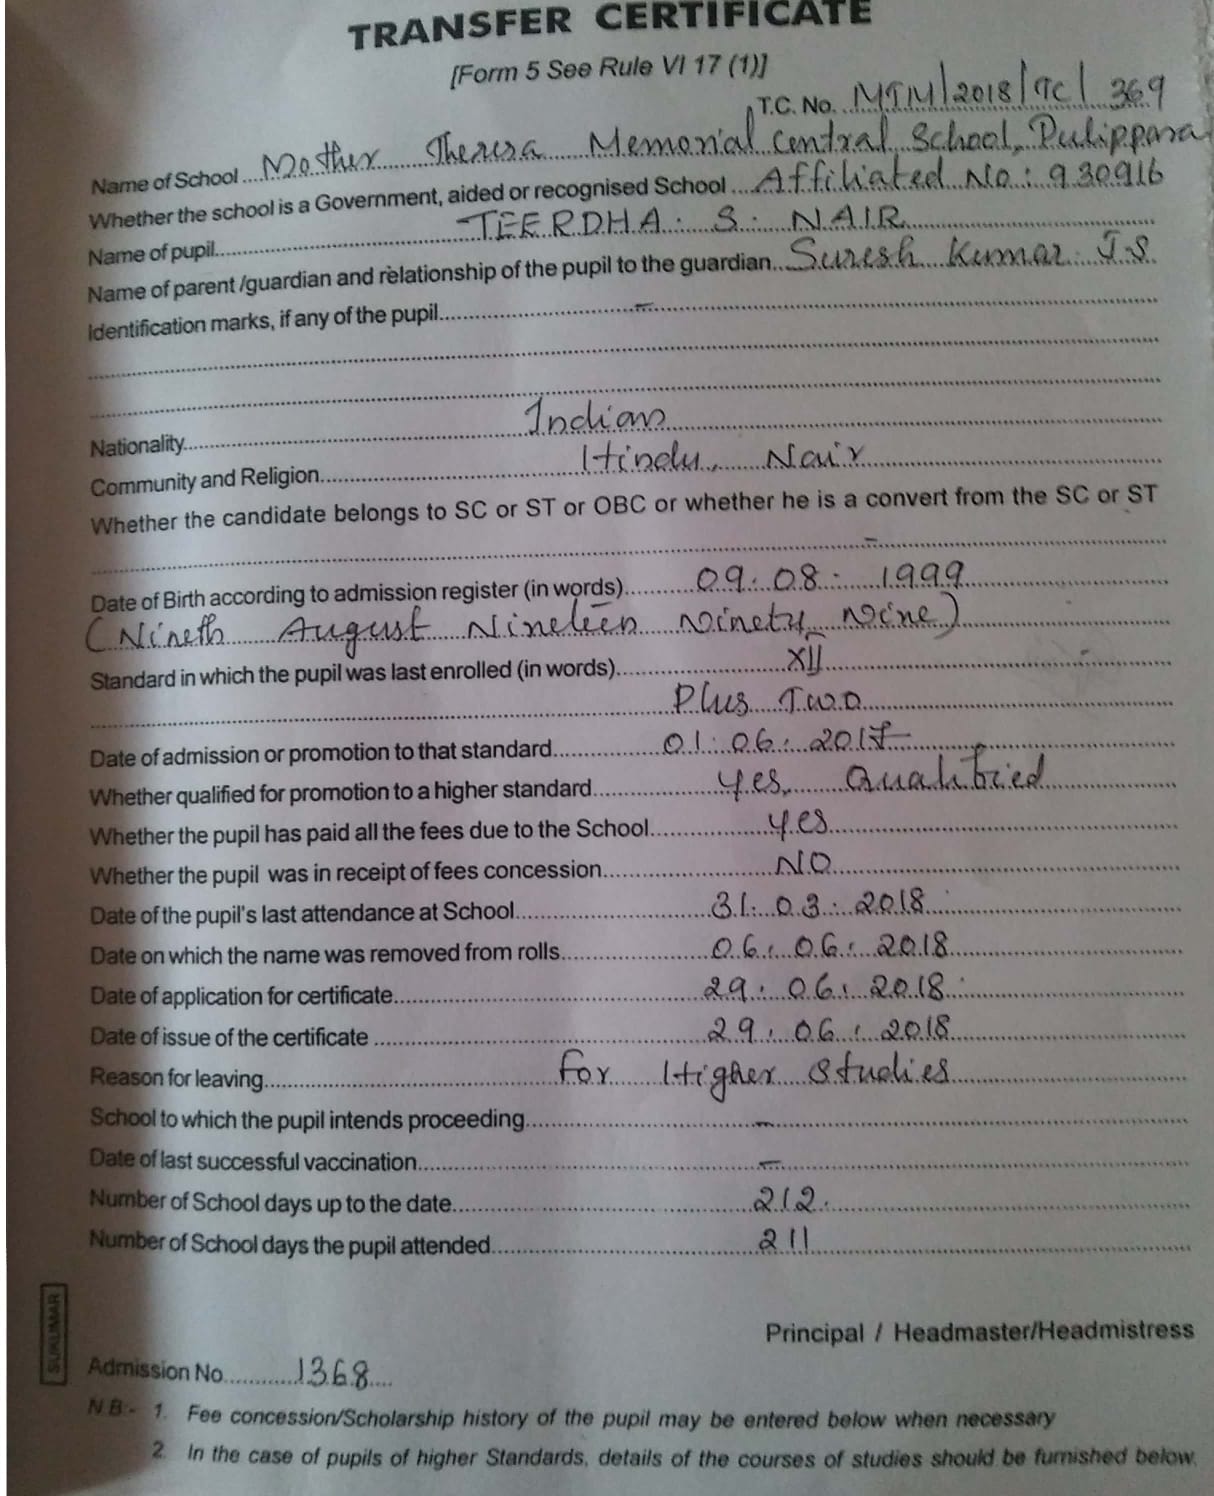 TRANSFER CERTIFICATE
[Form 5 See Rule VI 17 (1)]
T.C. No. MTM/2018/TC/ 369
Name of School Mother Theresa Memorial Central School, Pulippara
Whether the school is a Government, aided or recognised School Affiliated No: 930916
Name of pupil TEERDHA. S. NAIR
Name of parent /guardian and relationship of the pupil to the guardian Suresh Kumar. T.S
Identification marks, if any of the pupil –
Nationality Indian
Community and Religion Hindu, Nair
Whether the candidate belongs to SC or ST or OBC or whether he is a convert from the SC or ST
–
Date of Birth according to admission register (in words) 09. 08. 1999
(Nineth August Nineteen Ninety Nine)
Standard in which the pupil was last enrolled (in words) XII
Plus Two
Date of admission or promotion to that standard 01. 06. 2017
Whether qualified for promotion to a higher standard Yes, Qualified
Whether the pupil has paid all the fees due to the School Yes
Whether the pupil was in receipt of fees concession NO
Date of the pupil's last attendance at School 31. 03. 2018
Date on which the name was removed from rolls 06. 06. 2018
Date of application for certificate 29. 06. 2018
Date of issue of the certificate 29. 06. 2018
Reason for leaving For Higher Studies
School to which the pupil intends proceeding –
Date of last successful vaccination –
Number of School days up to the date 212.
Number of School days the pupil attended 211
SUKUMAR
Principal / Headmaster/Headmistress
Admission No 1368
N.B:- 1. Fee concession/Scholarship history of the pupil may be entered below when necessary
2. In the case of pupils of higher Standards, details of the courses of studies should be furnished below.